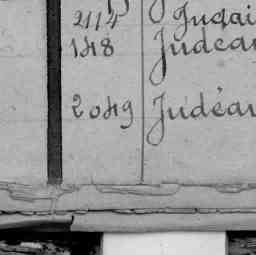 2114 Judai
148 Judéan
2049 Judéan